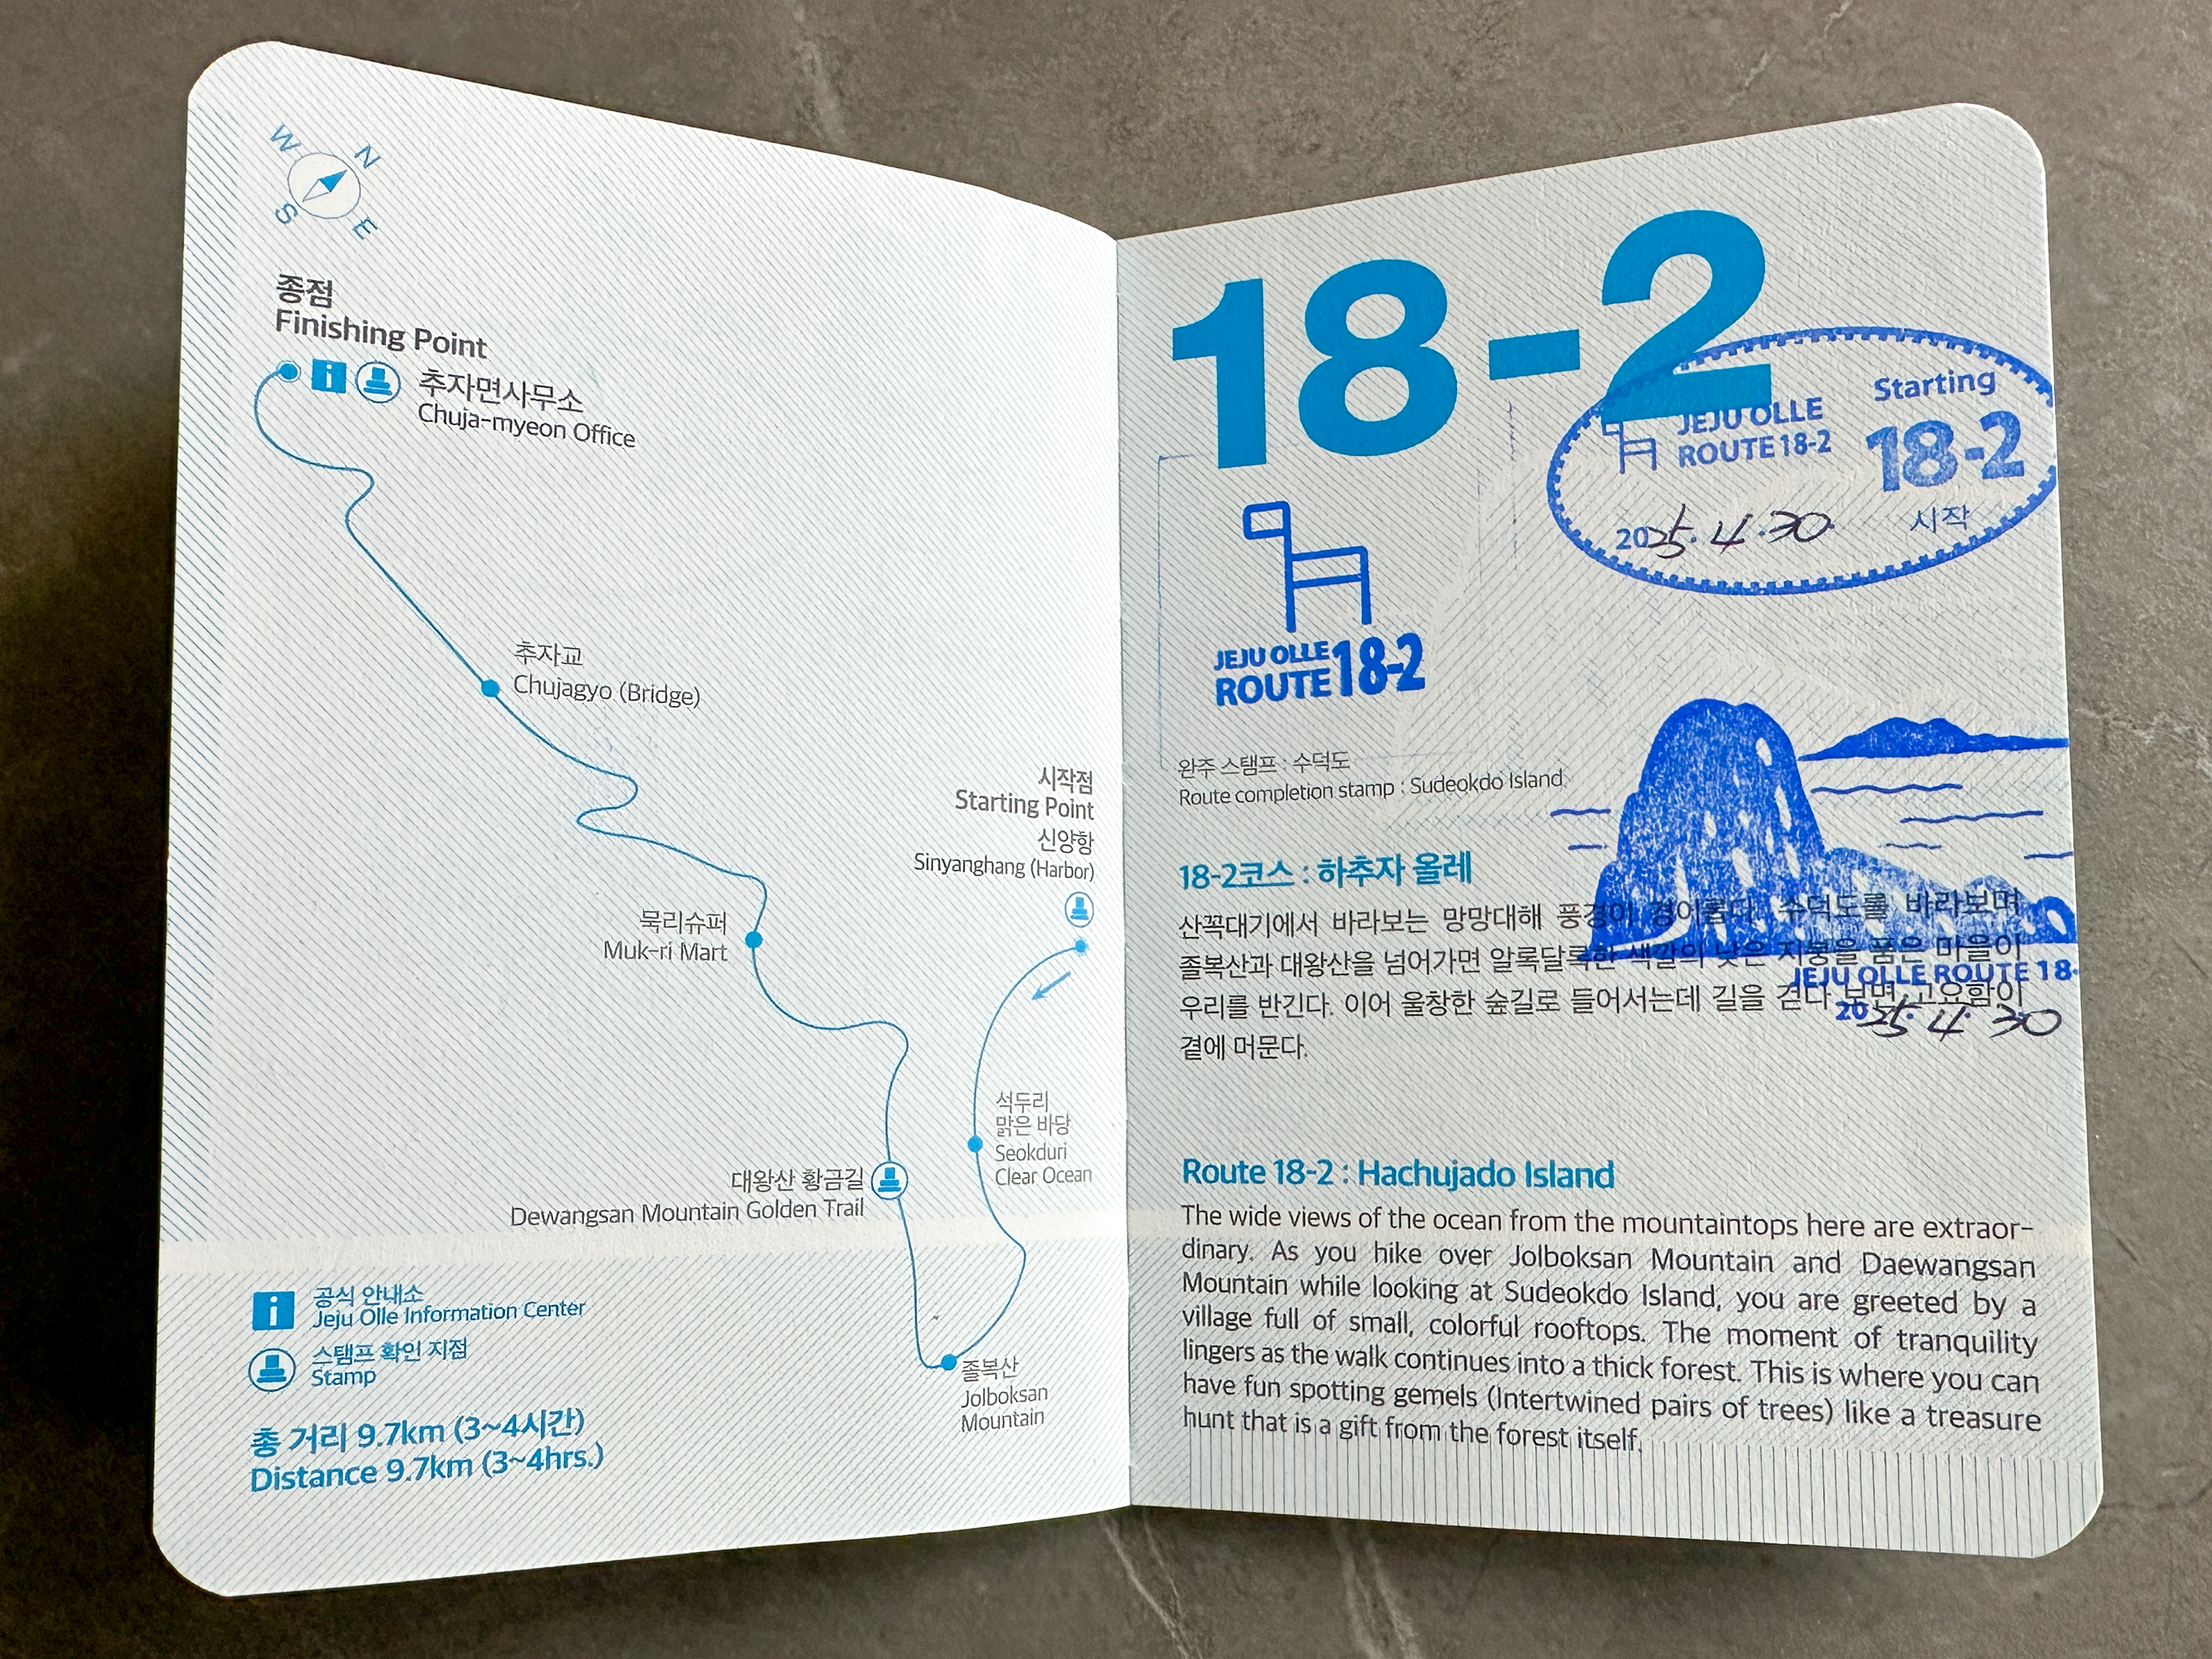 W
N
S
E
종점
Finishing Point
i
추자면사무소
Chuja-myeon Office
추자교
Chujagyo (Bridge)
시작점
Starting Point
신양항
Sinyanghang (Harbor)
묵리슈퍼
Muk-ri Mart
석두리
맑은 바당
Seokduri
Clear Ocean
대왕산 황금길
Dewangsan Mountain Golden Trail
졸복산
Jolboksan
Mountain
i
공식 안내소
Jeju Olle Information Center
스탬프 확인 지점
Stamp
총 거리 9.7km (3~4시간)
Distance 9.7km (3~4hrs.)
18-2
JEJU OLLE
ROUTE 18-2
Starting
18-2
시작
2025.4.30.
JEJU OLLE
ROUTE 18-2
완주 스탬프 : 수덕도
Route completion stamp : Sudeokdo Island
18-2코스 : 하추자 올레
산꼭대기에서 바라보는 망망대해 풍경이 경이롭다. 수덕도를 바라보며
졸복산과 대왕산을 넘어가면 알록달록한 색깔의 낮은 지붕을 품은 마을이
우리를 반긴다. 이어 울창한 숲길로 들어서는데 길을 걷다 보면 고요함이
곁에 머문다.
JEJU OLLE ROUTE 18-
2025.4.30
Route 18-2 : Hachujado Island
The wide views of the ocean from the mountaintops here are extraor-
dinary. As you hike over Jolboksan Mountain and Daewangsan
Mountain while looking at Sudeokdo Island, you are greeted by a
village full of small, colorful rooftops. The moment of tranquility
lingers as the walk continues into a thick forest. This is where you can
have fun spotting gemels (Intertwined pairs of trees) like a treasure
hunt that is a gift from the forest itself.